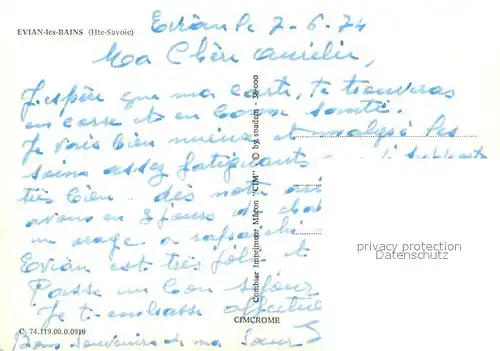 Evian le 7-6-74
EVIAN-les-BAINS (Hte-Savoie)
Ma Chère Aurélie,
J'espère que ma carte, te trouveras
en Corse et en bonne santé.
Je vais bien et les
soins assez fatigants
très bien dès notre
avons eu 3 jours de
un orage a rafraîchi
Evian est très joli et
Passe un bon séjour
Je t'embrasse
Bons souvenirs de ma Sœur
Combier Imprimeur Mâcon "CIM" © by snadem - 38-000
CIMCROME
C 74.119.00.0.0919
privacy protection
Datenschutz